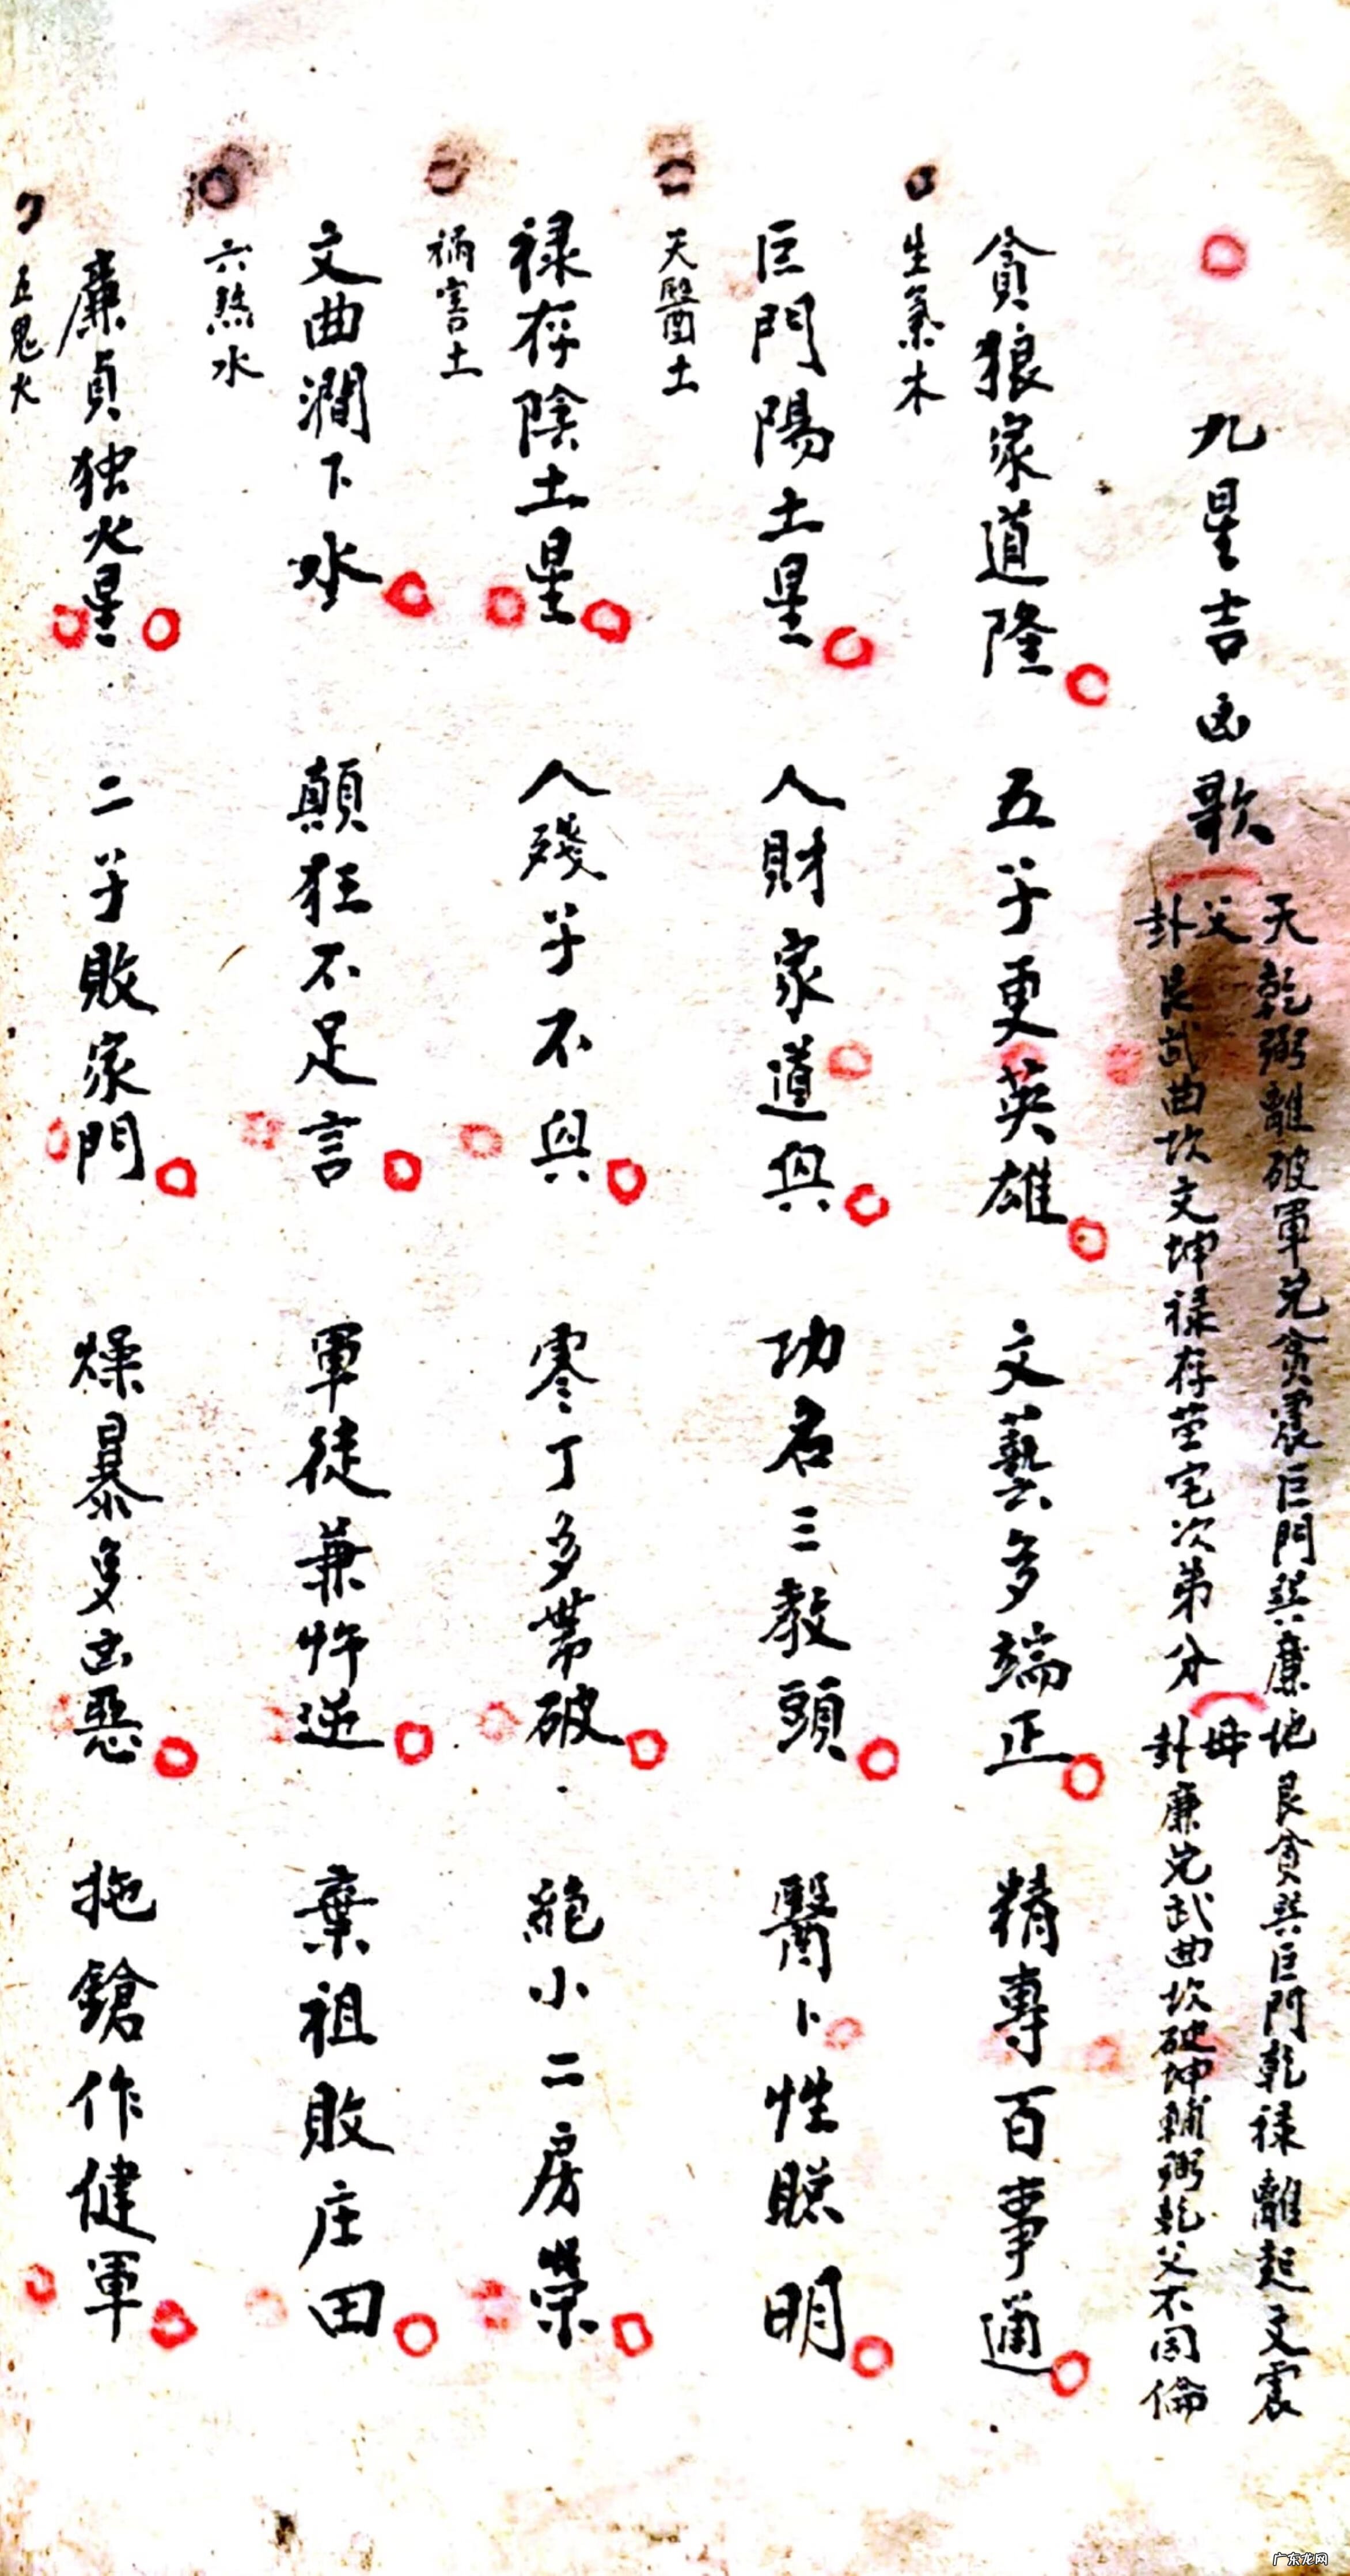 九星吉凶歌
天父卦
乾弼離破軍兌貪震巨門巽廉
艮武曲坎文坤禄存茔宅次第分
地母卦
艮貪巽巨門乾禄離起文震
廉兌武曲坎破坤輔弼乾父不同倫
貪狼家道隆 五子更英雄 文藝多端正 精專百事通
生氣木
巨門陽土星 人財家道興 功名三教頭 醫卜性聪明
天醫土
禄存陰土星 人殘子不興 零丁多带破 絕小二房榮
禍害土
文曲澗下水 顛狂不足言 軍徒兼忤逆 棄祖敗庄田
六煞水
廉貞独火星 二子敗家門 燥暴更凶惡 拖鎗作健軍
五鬼火
广东龙网